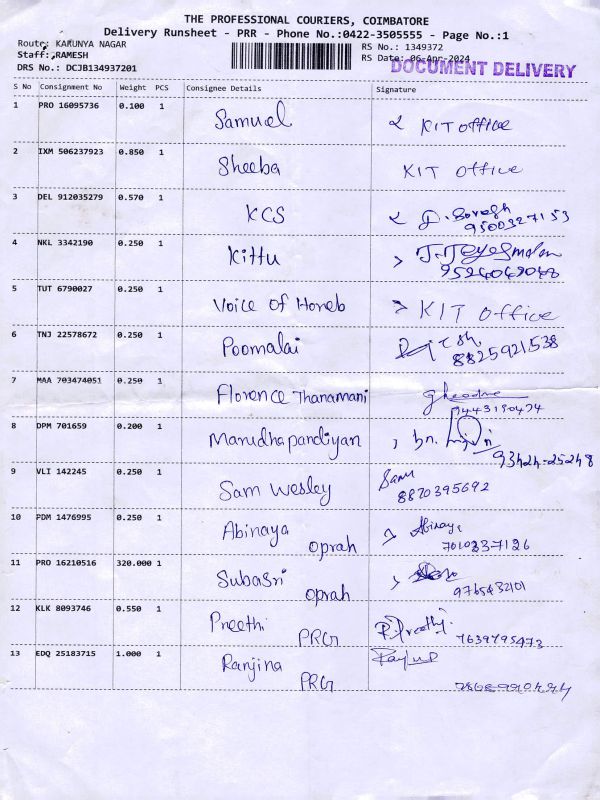 THE PROFESSIONAL COURIERS, COIMBATORE
Delivery Runsheet - PRR - Phone No.:0422-3505555 - Page No.:1
Route: KARUNYA NAGAR
Staff: RAMESH
DRS No.: DCJB134937201
RS No.: 1349372
RS Date: 06-Apr-2024
DOCUMENT DELIVERY
S No Consignment No Weight PCS Consignee Details Signature
1 PRO 16095736 0.100 1 Samuel KIT office
2 IXM 506237923 0.850 1 Sheeba KIT office
3 DEL 912035279 0.570 1 KCS D. Suresh
9500327153
4 NKL 3342190 0.250 1 Kittu
9524049048
5 TUT 6790027 0.250 1 Voice of Honeb KIT office
6 TNJ 22578672 0.250 1 Poomalai
8825921538
7 MAA 703474051 0.250 1 Florence Thanamani
8 DPM 701659 0.200 1 Marudhapandiyan
9 VLI 142245 0.250 1 Sam Wesley Sam
8870395692
10 PDM 1476995 0.250 1 Abinaya Oprah Abinaya
7010337126
11 PRO 16210516 320.000 1 Subasri Oprah
12 KLK 8093746 0.550 1 Preethi PRG R. Preethi
7639795473
13 EDQ 25183715 1.000 1 Ranjina PRG